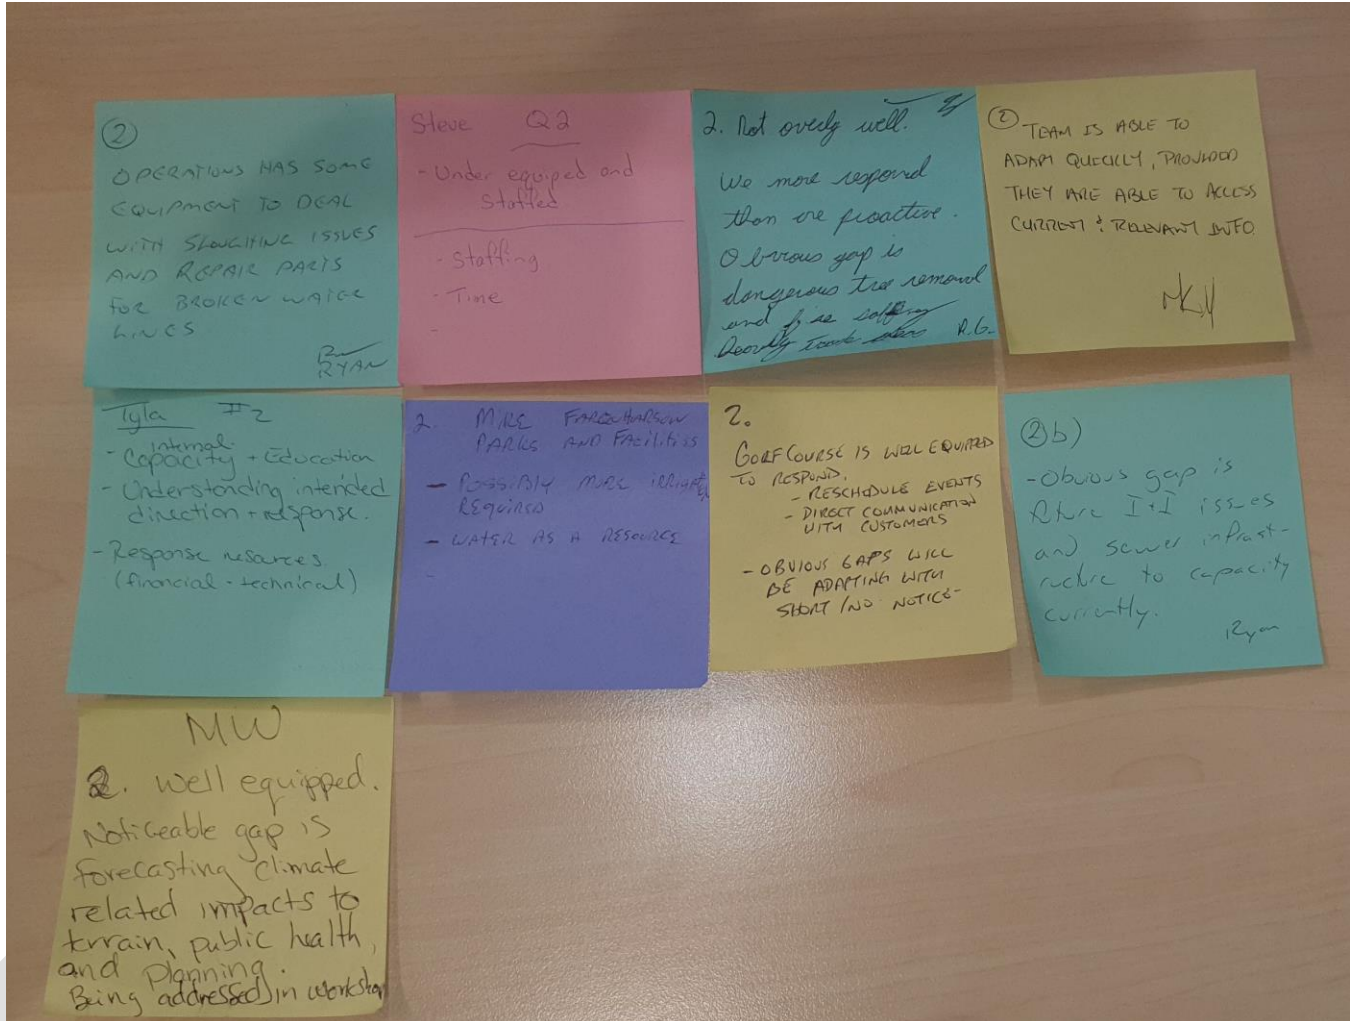 ②
OPERATIONS HAS SOME
EQUIPMENT TO DEAL
WITH SLOUGHING ISSUES
AND REPAIR PARTS
FOR BROKEN WATER
LINES
RYAN
Steve Q2
- Under equiped and
Staffed
- Staffing
- Time
-
2. Not overly well.
We more respond
than are proactive.
Obvious gap is
dangerous tree removal
and
R.G.
② TEAM IS ABLE TO
ADAPT QUICKLY, PROVIDED
THEY ARE ABLE TO ACCESS
CURRENT & RELEVANT INFO.
Tyla #2
- internal
Capacity + Education
- Understanding intended
direction + response.
- Response resources
(financial - technical)
2. MIKE FARQUHARSON
PARKS AND FACILITIES
- POSSIBLY MORE
REQUIRED
- WATER AS A RESOURCE
-
2.
GOLF COURSE IS WELL EQUIPPED
TO RESPOND.
- RESCHEDULE EVENTS
- DIRECT COMMUNICATION
WITH CUSTOMERS
- OBVIOUS GAPS WILL
BE ADAPTING WITH
SHORT/NO NOTICE-
②b)
- Obvious gap is
future I+I issues
and sewer infrast-
ructure to capacity
currently.
Ryan
MW
2. Well equipped.
Noticeable gap is
forecasting climate
related impacts to
terrain, public health,
and planning.
Being addressed in workshop